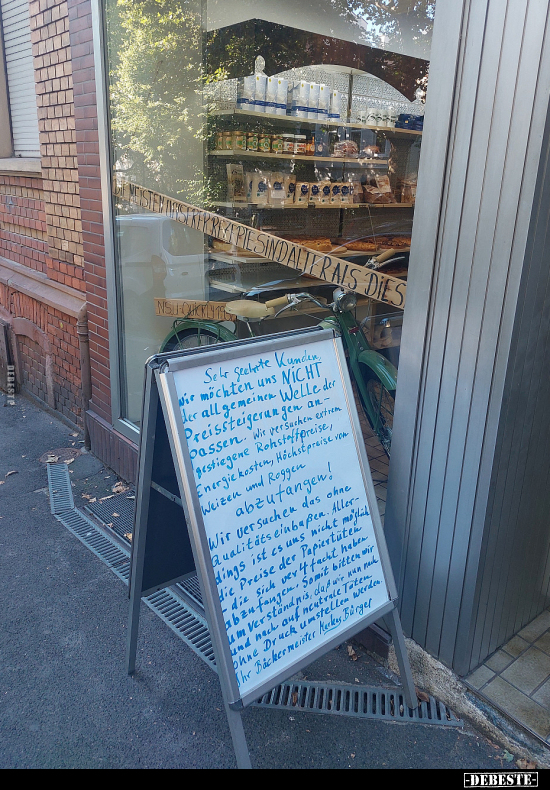 Sehr geehrte Kunden,
wir möchten uns NICHT
der allgemeinen Welle der
Preissteigerungen an-
passen. Wir versuchen extrem
gestiegene Rohstoffpreise,
Energiekosten, Höchstpreise von
Weizen und Roggen
abzufangen!
Wir versuchen das ohne
Qualitätseinbaßen. Aller-
dings ist es uns nicht möglich
die Preise der Papiertüten
, die sich ver4facht haben
abzufangen. Somit bitten wir
um Verständnis, daß wir nun nach
und nach auf neutrale Tüten
ohne Druck umstellen werden.
Ihr Bäckermeister Markus Bürger
-DEBESTE-
DEBESTE